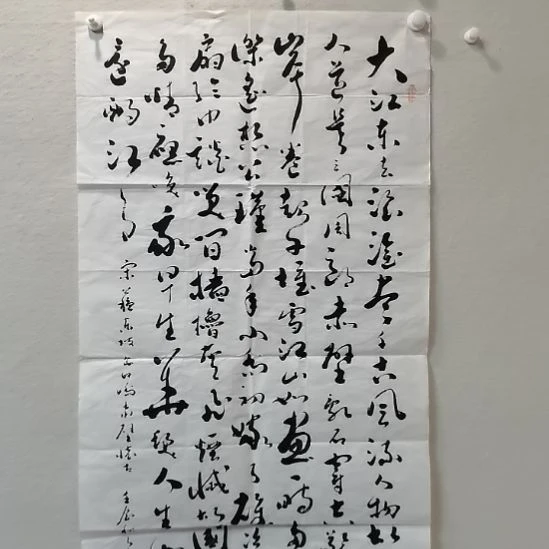 大江东去浪淘尽千古风流人物故
人道是三国周郎赤壁乱石穿空惊
岸卷起千堆雪江山如画一时多
杰遥想公瑾当年小乔初嫁了雄姿
扇纶巾谈笑间樯橹灰飞烟灭故国
多情应笑我早生华发人生
还酹江月
宋苏东坡 赤壁怀古